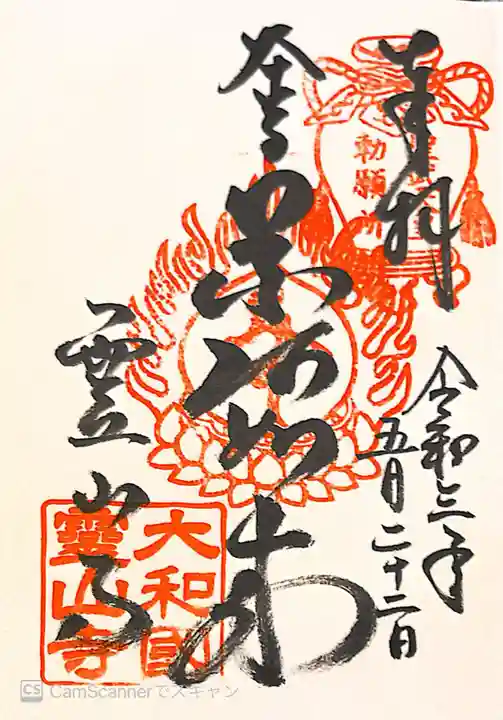 奉拝
勅願所
令和三年
五月二十二日
如来
霊山寺
大和國
靈山寺
CS CamScannerでスキャン